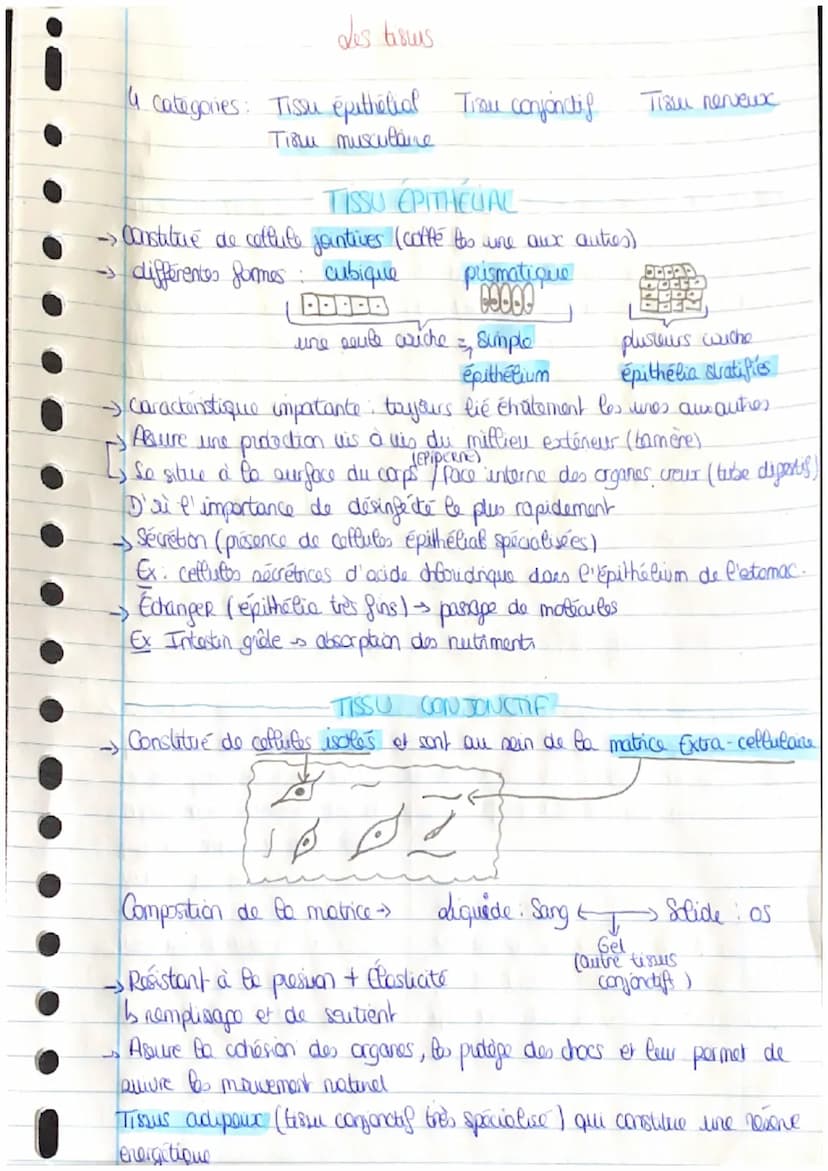 Les tissus
4 catégories : Tissu épithélial Tissu conjonctif Tissu nerveux
Tissu musculaire
TISSU ÉPITHÉLIAL
→ Constitué de cellule jointives (collé les une aux autres)
→ différentes formes : cubique prismatique
une seule couche = simple plusieurs couche
épithélium épithélia stratifiés
→ caractéristique importante : toujours lié étroitement les unes aux autres
→ Assure une protection vis à vis du millieu extérieur (barrière)
(EPIDERME)
↳ Se situe à la surface du corps / face interne des organes creux (tube digestif)
D'où l'importance de désinfecté le plus rapidement
→ Sécrétion (présence de cellules épithélial spécialisées)
Ex : cellules sécrétrices d'acide chloridrique dans l'épithélium de l'estomac.
→ Échanger (épithélia très fins) → passage de molécules
Ex Intestin grêle → absorption des nutriments
TISSU CONJONCTIF
→ Constitué de cellules isolés et sont au sein de la matrice Extra-cellulaire
Composition de la matrice → Liquide : Sang ← → Solide : os
Gel
(autre tissus
conjonctifs)
→ Résistant à la pression + Élasticité
↳ remplissage et de soutient
→ Assure la cohésion des organes, les protège des chocs et leur permet de
suivre les mouvement naturel
Tissus adipeux (tissu conjonctif très spécialisé) qui constitue une réserve
énergétique